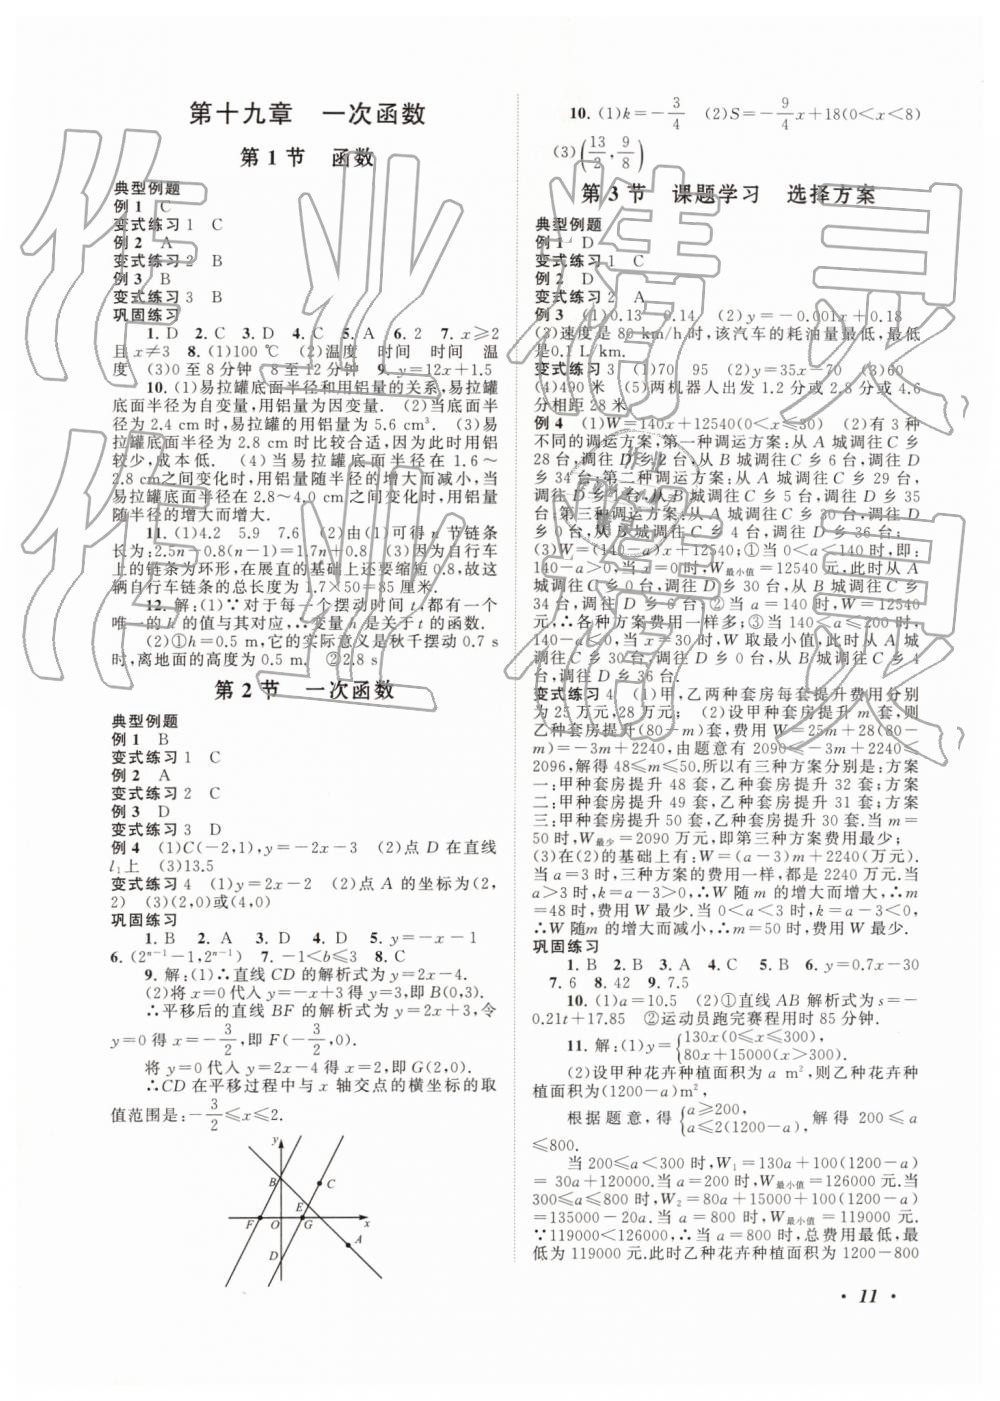 第十九章　一次函数
第 1 节　函数
典型例题
例 1　C
变式练习 1　C
例 2　A
变式练习 2　B
例 3　B
变式练习 3　B
巩固练习
1. D　2. C　3. D　4. C　5. A　6. 2　7. x≥2
且 x≠3　8. (1)100 ℃　(2)温度　时间　时间　温
度　(3)0 至 8 分钟　8 至 12 分钟　9. y=12x+1.5
10. (1)易拉罐底面半径和用铝量的关系,易拉罐
底面半径为自变量,用铝量为因变量.　(2)当底面半
径为 2.4 cm 时,易拉罐的用铝量为 5.6 cm³.　(3)易
拉罐底面半径为 2.8 cm 时比较合适,因为此时用铝
较少,成本低.　(4)当易拉罐底面半径在 1.6～
2.8 cm之间变化时,用铝量随半径的增大而减小,当
易拉罐底面半径在 2.8～4.0 cm 之间变化时,用铝量
随半径的增大而增大.
11. (1)4.2　5.9　7.6　(2)由(1)可得 n 节链条
长为:2.5n－0.8(n－1)=1.7n+0.8　(3)因为自行车
上的链条为环形,在展直的基础上还要缩短 0.8,故这
辆自行车链条的总长度为 1.7×50=85 厘米.
12. 解:(1)∵对于每一个摆动时间 t,都有一个
唯一的 h 的值与其对应,∴变量 h 是关于 t 的函数.
(2)①h=0.5 m,它的实际意义是秋千摆动 0.7 s
时,离地面的高度为 0.5 m.　②2.8 s
第 2 节　一次函数
典型例题
例 1　B
变式练习 1　C
例 2　A
变式练习 2　C
例 3　D
变式练习 3　D
例 4　(1)C(－2,1),y=－2x－3　(2)点 D 在直线
l₁上　(3)13.5
变式练习 4　(1)y=2x－2　(2)点 A 的坐标为(2,
2)　(3)(2,0)或(4,0)
巩固练习
1. B　2. A　3. D　4. D　5. y=－x－1
6. (2ⁿ⁻¹－1,2ⁿ⁻¹)　7. －1<b≤3　8. C
9. 解:(1)∴直线 CD 的解析式为 y=2x－4.
(2)将 x=0 代入 y=－x+3 得 y=3,即 B(0,3).
∴平移后的直线 BF 的解析式为 y=2x+3,令
y=0 得 x=－3/2,即 F(－3/2,0).
将 y=0 代入 y=2x－4 得 x=2,即 G(2,0).
∴CD 在平移过程中与 x 轴交点的横坐标的取
值范围是:－3/2≤x≤2.
y
B
C
E
F
O
G
x
A
D
10. (1)k=－3/4　(2)S=－9/4x+18(0<x<8)
(3)(13/2,9/8)
第 3 节　课题学习　选择方案
典型例题
例 1　D
变式练习 1　C
例 2　D
变式练习 2　A
例 3　(1)0.13　0.14　(2)y=－0.001x+0.18
(3)速度是 80 km/h 时,该汽车的耗油量最低,最低
是0.1 L/km.
变式练习 3　(1)70　95　(2)y=35x－70　(3)60
(4)490 米　(5)两机器人出发 1.2 分或 2.8 分或 4.6
分相距 28 米
例 4　(1)W=140x+12540(0<x≤30)　(2)有 3 种
不同的调运方案,第一种调运方案:从 A 城调往 C 乡
28 台,调往 D 乡 2 台,从 B 城调往 C 乡 6 台,调往 D
乡 34 台;第二种调运方案:从 A 城调往 C 乡 29 台,
调往 D 乡 1 台,从 B 城调往 C 乡 5 台,调往 D 乡 35
台;第三种调运方案:从 A 城调往 C 乡 30 台,调往 D
乡 0 台,从 B 城调往 C 乡 4 台,调往 D 乡 36 台;
(3)W=(140－a)x+12540;①当 0<a<140 时,即:
140－a>0,当 x=0 时,W最小值=12540 元,此时从 A
城调往 C 乡 0 台,调往 D 乡 30 台,从 B 城调往 C 乡
34 台,调往 D 乡 6 台;②当 a=140 时,W=12540
元,∴各种方案费用一样多;③当 140<a≤200 时,
140－a<0,当 x=30 时,W 取最小值,此时从 A 城
调往 C 乡 30 台,调往 D 乡 0 台,从 B 城调往 C 乡 4
台,调往 D 乡 36 台.
变式练习 4　(1)甲,乙两种套房每套提升费用分别
为 25 万元,28 万元;　(2)设甲种套房提升 m 套,则
乙种套房提升(80－m)套,费用 W=25m+28(80－
m)=－3m+2240,由题意有 2090≤－3m+2240≤
2096,解得 48≤m≤50.所以有三种方案分别是:方案
一:甲种套房提升 48 套,乙种套房提升 32 套;方案
二:甲种套房提升 49 套,乙种套房提升 31 套;方案
三:甲种套房提升 50 套,乙种套房提升 30 套.当 m=
50 时,W最少=2090 万元,即第三种方案费用最少;
(3)在(2)的基础上有:W=(a－3)m+2240(万元).
当 a=3 时,三种方案的费用一样,都是 2240 万元.当
a>3 时,k=a－3>0,∴W 随 m 的增大而增大,∴m
=48 时,费用 W 最少.当 0<a<3 时,k=a－3<0,
∴W随 m 的增大而减小,∴m=50 时,费用 W 最少.
巩固练习
1. B　2. B　3. A　4. C　5. B　6. y=0.7x－30
7. 6　8. 42　9. 7.5
10. (1)a=10.5　(2)①直线 AB 解析式为 s=－
0.21t+17.85　②运动员跑完赛程用时 85 分钟.
11. 解:(1)y={130x(0≤x≤300),
80x+15000(x>300).
(2)设甲种花卉种植面积为 a m²,则乙种花卉种
植面积为(1200－a)m²,
根据题意,得{a≥200,
a≤2(1200－a),解得 200≤a
≤800.
当 200≤a<300 时,W₁=130a+100(1200－a)
=30a+120000.当 a=200 时,W最小值=126000 元.当
300≤a≤800 时,W₂=80a+15000+100(1200－a)
=135000－20a.当 a=800 时,W最小值=119000 元.
∵119000<126000,∴当 a=800 时,总费用最低,最
低为 119000 元.此时乙种花卉种植面积为 1200－800
· 11 ·
作业精灵
作业精灵